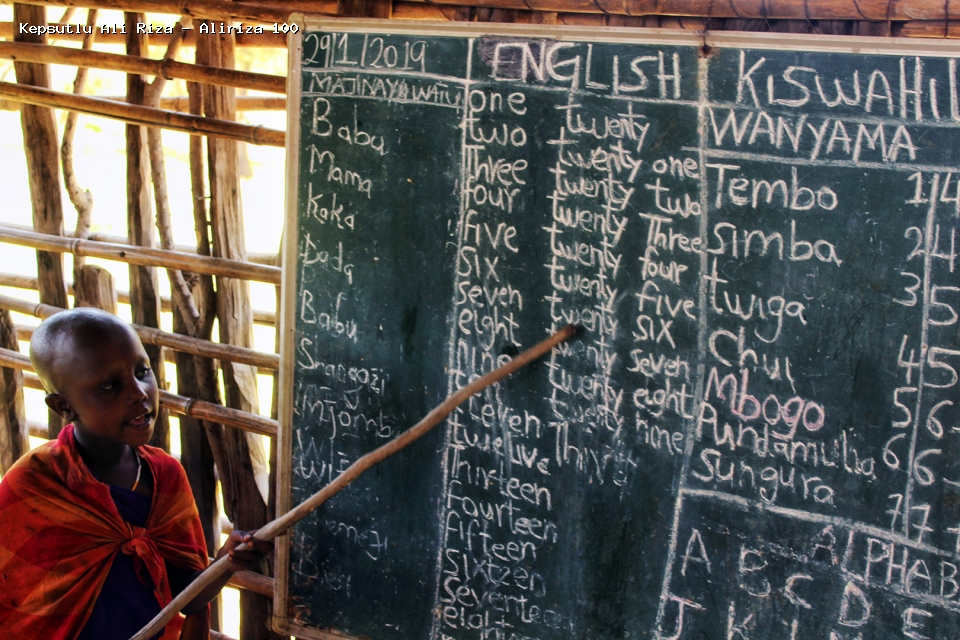 Kepsutlu Ali Riza - Aliriza 100
29/1/2019
MAJINA YA WATU
Babu
Mama
Kaka
Dada
Babu
ENGLISH
one
two
Three
four
five
six
seven
eight
nine
eleven
twelve
Thirteen
fourteen
fifteen
sixteen
twenty
twenty one
twenty two
twenty Three
twenty four
twenty five
twenty six
twenty seven
twenty eight
twenty
KISWAHILI
WANYAMA
Tembo
Simba
twiga
Chui
Mbogo
Pundamilia
Sungura
1
2
3
4
5
6
7
4
4
5
5
6
6
7
ALPHAB
A B C D E
J K